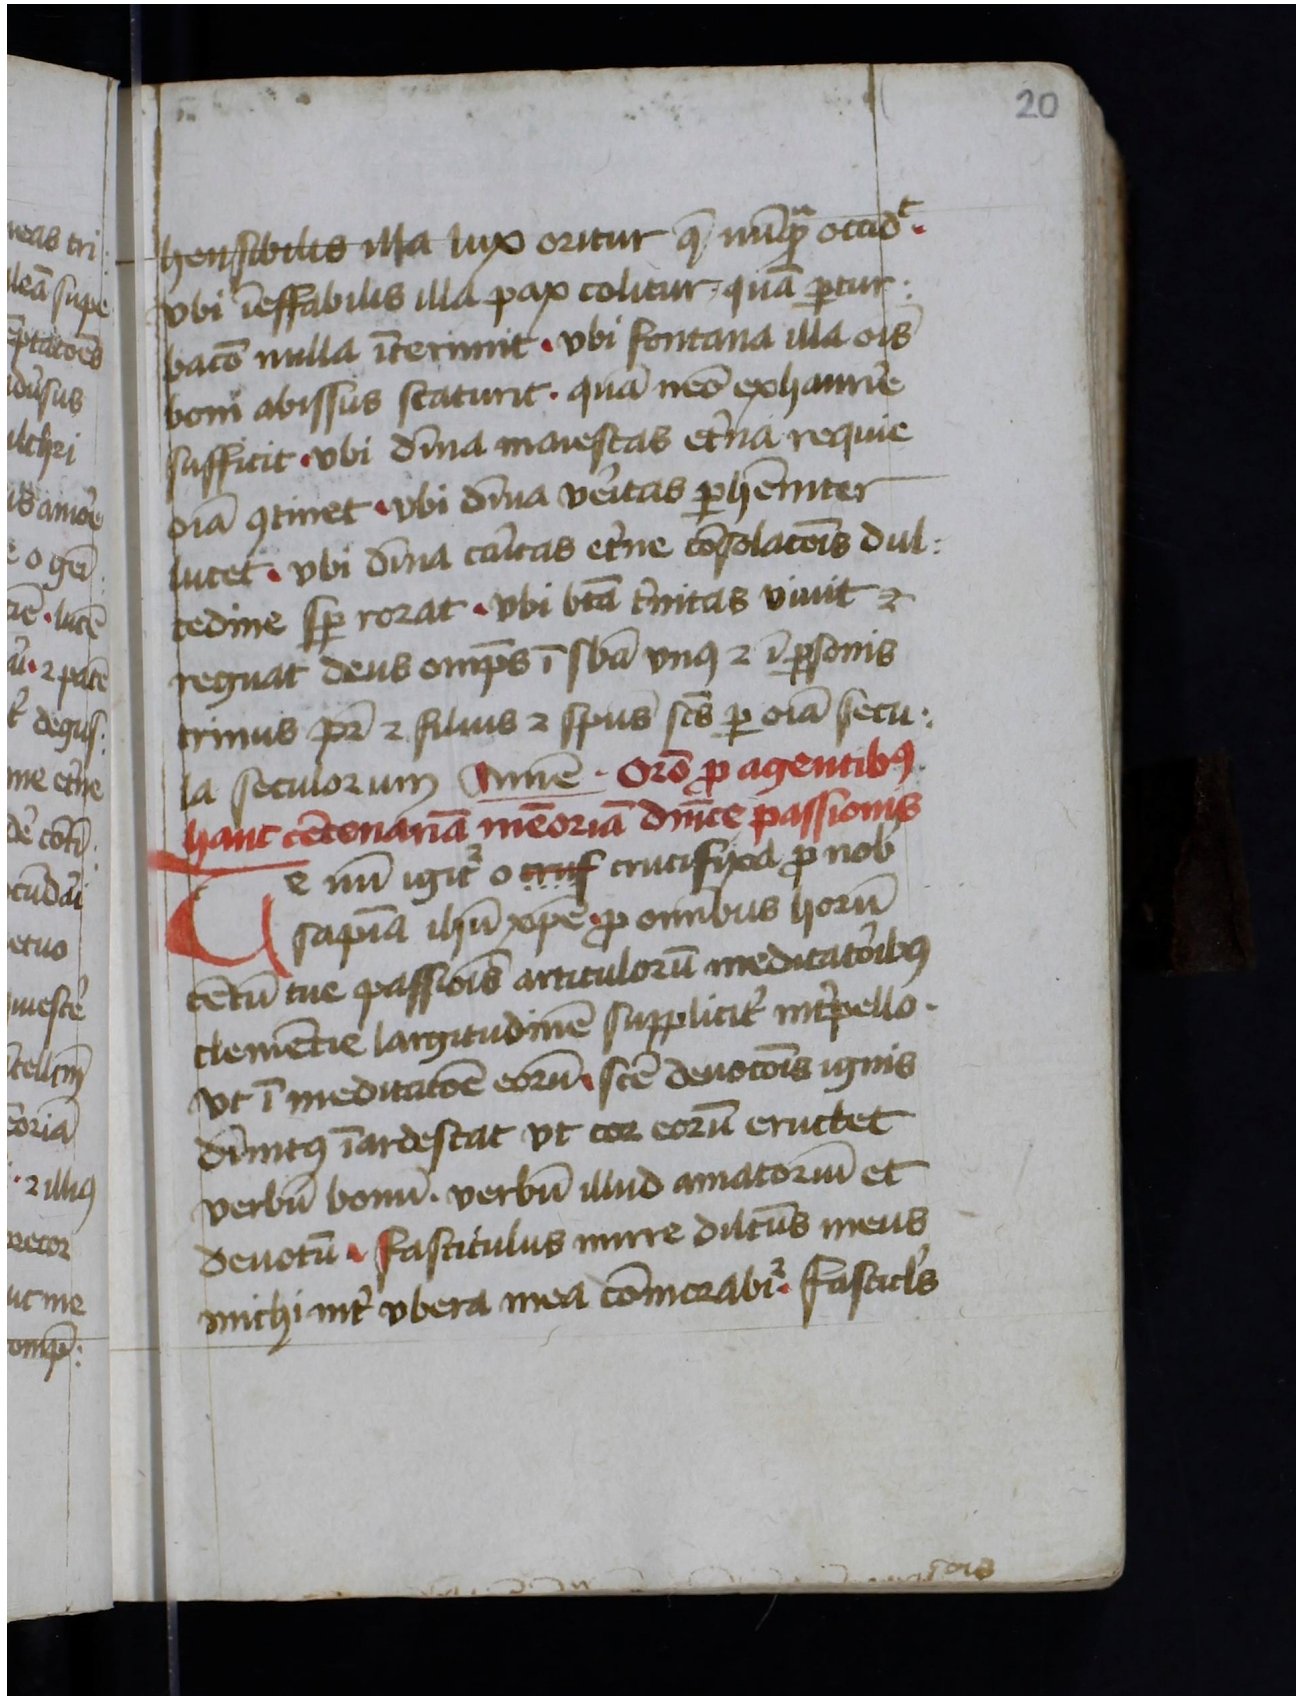 20
hensibilis illa lux oritur q̄ nūꝙᵃ occidᵗ.
vbi īeffabilis illa pax colitur, quā ꝑtur:
bacō nulla īterimit . vbi fontana illa oīs
boni abissus scaturit . quā nēo exhaurīe
sufficit . vbi dīna maiestas et̄na requie
oīā ꝯtinet . vbi dīna vēitas ꝑhēniter
lucet . vbi dīna cāitas et̄ne cōsolacōis dul:
cedine sꝑ rorat . vbi btā t̄nitas viuit ⁊
regnat deus omp̄s ī sbā vnꝰ ⁊ ī ꝑsonis
trinus pr̄ ⁊ filius ⁊ spūs sc̄s ꝑ oīā secu:
la seculorum Amē . Orō ꝓ agentibꝰ
hanc cētenariā mēoriā dn̄ice passionis
Te nū igiť o cruf crucifixa ꝓ nob̄
sapīa ihū xp̄e . ꝓ omībus horū
cētū tue passiōis articulorū meditatōibꝰ
clemētie largitudinē suppliciť int̄pello .
vt ī meditatōe eorū . scē deuocōis ignis
dīnitꝰ īardescat vt cor eorū eructet
verbū bonū . verbū illud amatoriū et
deuotū . fasciculus mirre dilcūs meus
michi int̄ vbera mea cōmorabiᷣ . fascicl̄s